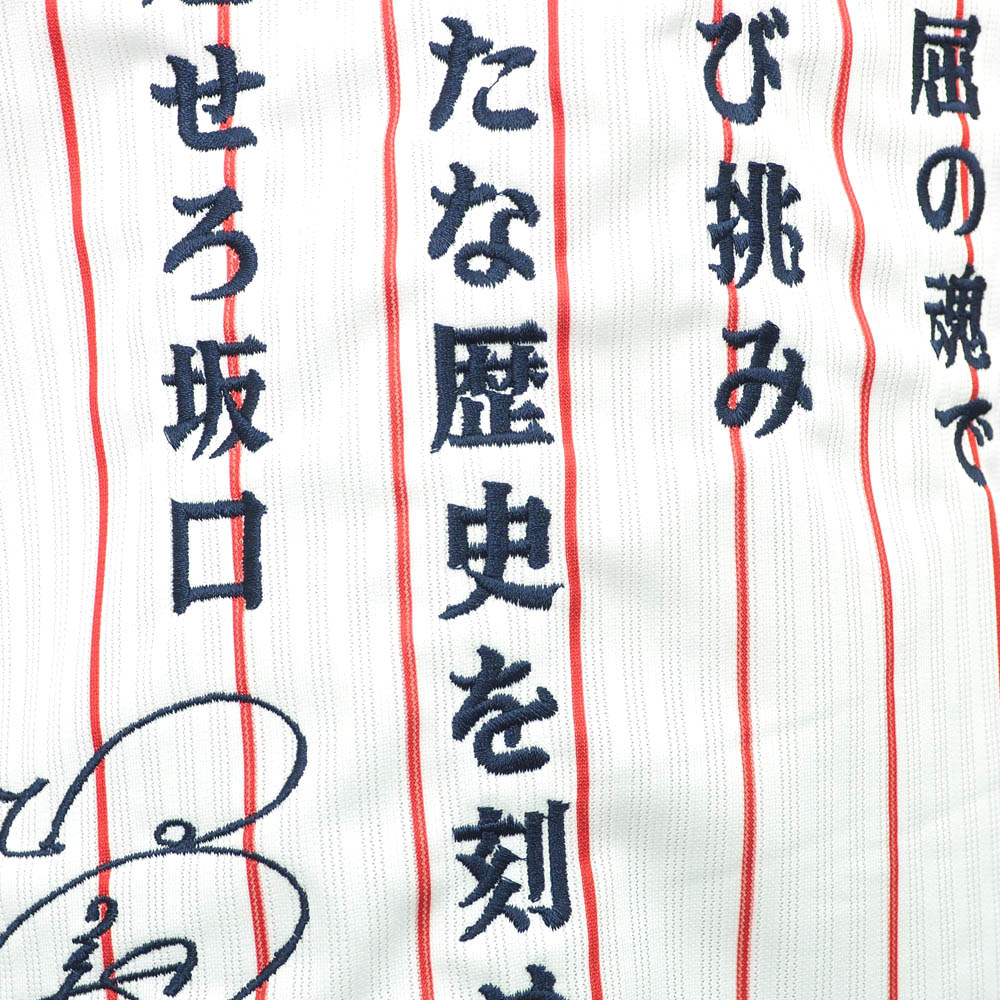 屈の魂で
び挑み
たな歴史を刻
せろ坂口